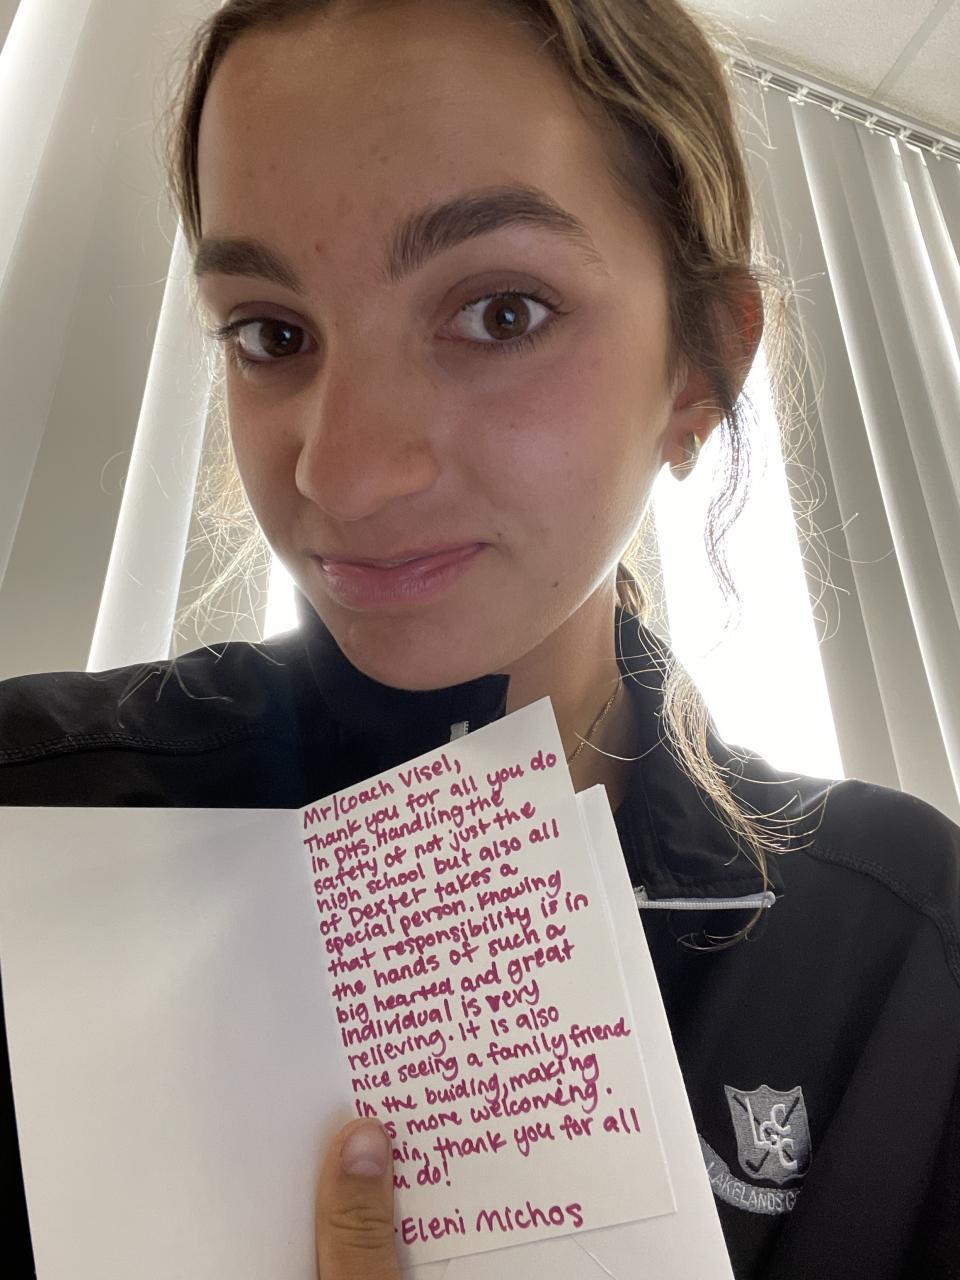 Mr/Coach Visel,
Thank you for all you do
in DHS. Handling the
safety of not just the
high school but also all
of Dexter takes a
special person. Knowing
that responsibility is in
the hands of such a
big hearted and great
individual is very
relieving. It is also
nice seeing a family friend
in the buiding, making
more welcoming.
thank you for all
do!
-Eleni Michos
LCC
LAKELANDS